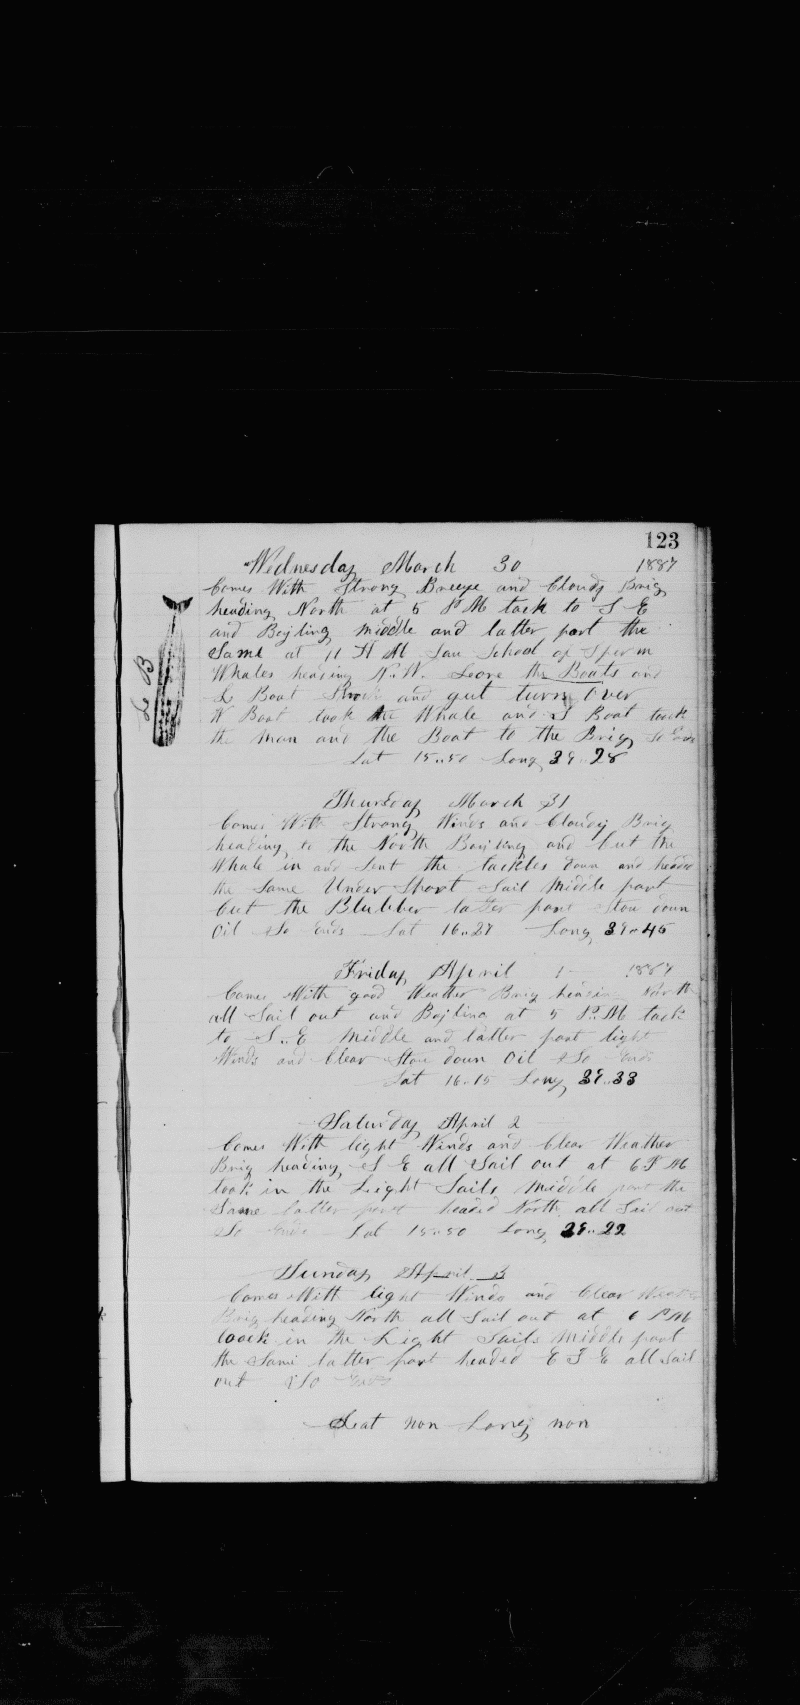 123
Wednesday March 30 1887
Comes With Strong Breeze and Cloudy Brig
heading North at 5 P M tack to S E
and Bojling middle and latter part the
Same at 11 A M Saw School of Sperm
Whales heading N.W. Leore the Boats and
L Boat Strock and got turn Over
W Boat took the Whale and S Boat took
the man and the Boat to the Brig So Ends
L B
Lat 15..50 Long 39..28
Thursday March 31
Comes With Strong Winds and Cloudy Brig
heading to the North Bojling and Cut the
Whale in and Sent the tackles down and headed
the Same Under Short Sail Middle part
Cut the Blubber latter part Stow down
Oil So Ends Lat 16..27 Long 39..45
Friday April 1 1887
Comes With good Weather Brig heading North
all Sail out and Bojling at 5 P.M tack
to S..E Middle and latter part light
Winds and Clear Stow down Oil So Ends
Lat 16..15 Long 39..33
Saturday April 2
Comes With light Winds and Clear Weather
Brig heading S E all Sail out at 6 P M
took in the Light Sails Middle part the
Same latter part headed North all Sail out
So Ends Lat 15..50 Long 39..22
Sunday April 3
Comes With light Winds and Clear Weather
Brig heading North all Sail out at 6 P M
toock in the Light Sails Middle part
the Same latter part headed E S E all Sail
out So Ends
Leat non Long non